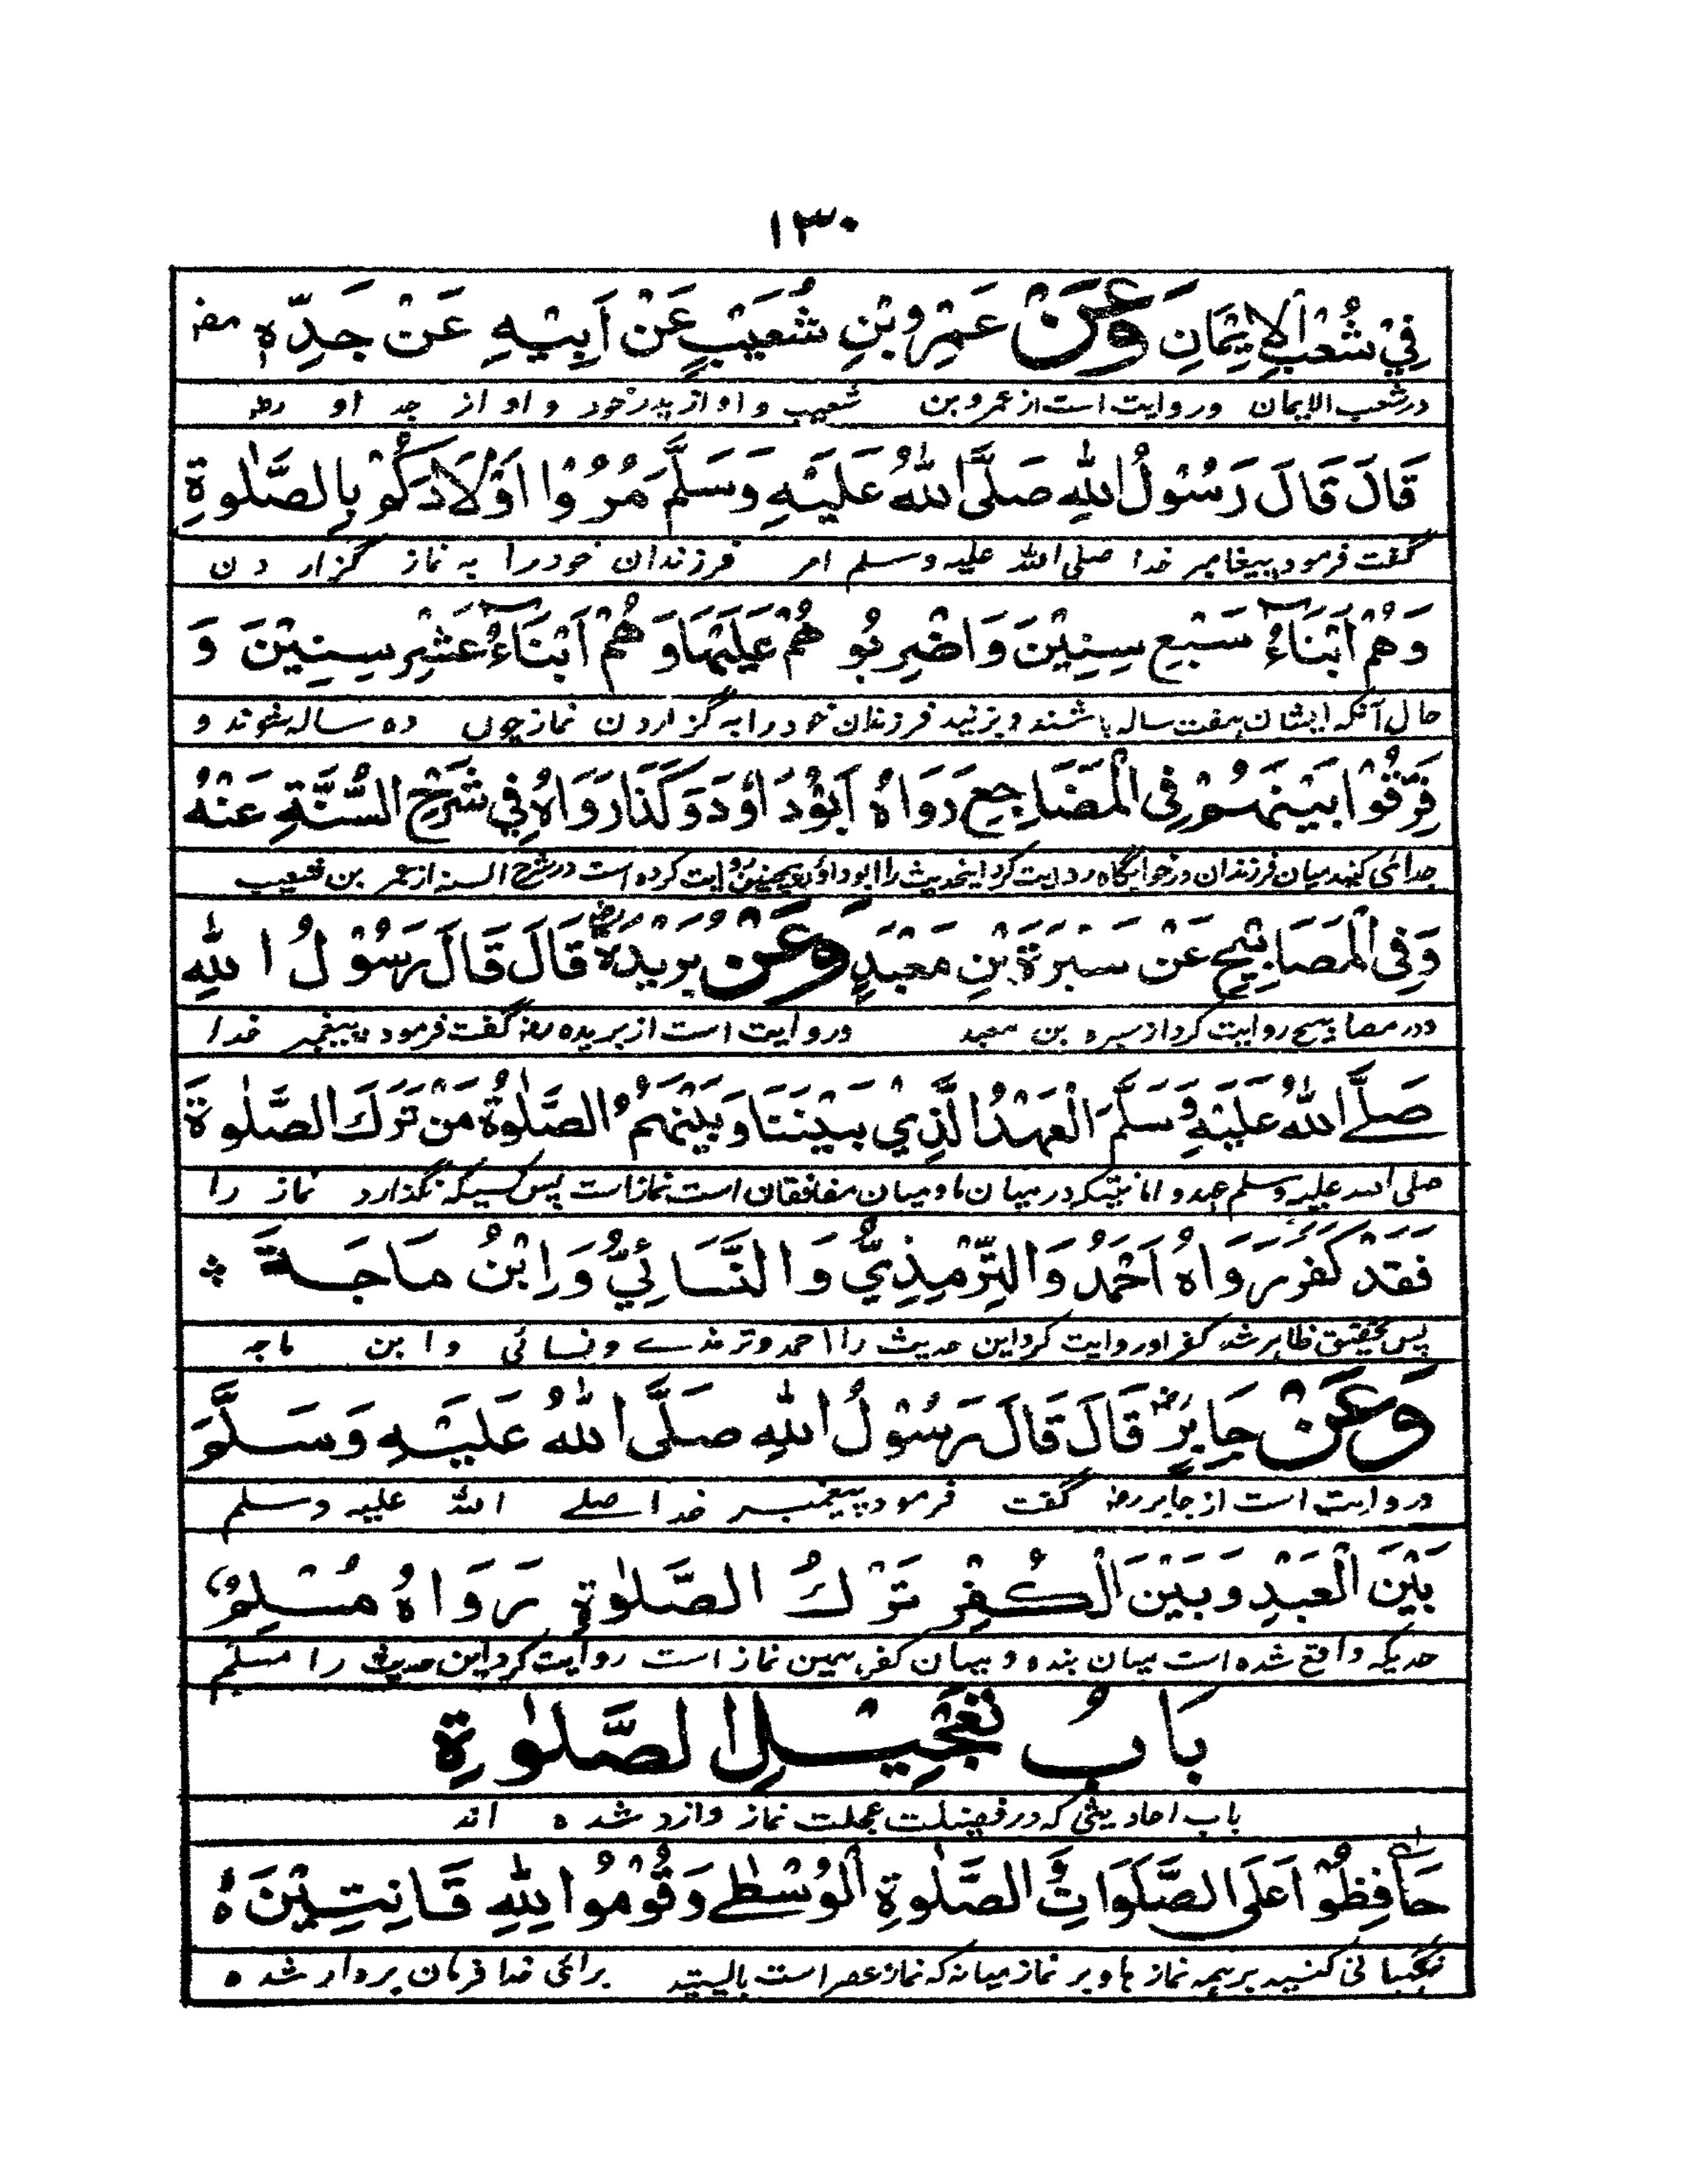 ١٣٠
فِيْ شُعَبِ الْاِيْمَانِ وَعَنْ عَمْرِو بْنِ شُعَيْبٍ عَنْ اَبِيْهِ عَنْ جَدِّهٖ رضـ
در شعب الایمان و روایت است از عمرو بن شعیب و او از پدر خود و او از جد او رضـ
قَالَ قَالَ رَسُوْلُ اللهِ صَلَّى اللهُ عَلَيْهِ وَسَلَّمَ مُرُوْا اَوْلَادَكُمْ بِالصَّلٰوةِ
گفت فرمود پیغامبر خدا صلی الله علیه و سلم امر فرزندان خود را به نماز گزار دن
وَهُمْ اَبْنَاءُ سَبْعِ سِنِيْنَ وَاضْرِبُوْ هُمْ عَلَيْهَا وَهُمْ اَبْنَاءُ عَشْرِ سِنِيْنَ وَ
حال آنکه ایشان هفت ساله باشند و بزنید فرزندان خود را به گزاردن نماز چوں ده ساله شوند و
فَرِّقُوْا بَيْنَهُمْ فِى الْمَضَاجِعِ رَوَاهُ اَبُوْدَاوٗدَ وَكَذَا رَوَاهُ فِيْ شَرْحِ السُّنَّةِ عَنْهُ
جدائی کنید میان فرزندان در خوابگاه روایت کرد اینحدیث را ابوداؤد و همچنین روایت کرده است در شرح السنه از عمر بن شعیب
وَفِى الْمَصَابِيْحِ عَنْ سَبْرَةَ بْنِ مَعْبَدٍ وَعَنْ بُرَيْدَةَ رضـ قَالَ قَالَ رَسُوْلُ اللهِ
و در مصابیح روایت کرد از سبره بن معبد و روایت است از بریده رضـ گفت فرمود پیغمبر خدا
صَلَّے اللهُ عَلَيْهِ وَسَلَّمَ الْعَهْدُ الَّذِيْ بَيْنَنَا وَبَيْنَهُمُ الصَّلٰوةُ مَنْ تَرَكَ الصَّلٰوةَ
صلی الله علیه وسلم عهد و امانیتیکه در میان ما و میان منافقان است نماز است پس کسیکه نگذارد نماز را
فَقَدْ كَفَرَ رَوَاهُ اَحْمَدُ وَالتِّرْمِذِيُّ وَالنَّسَائِيُّ وَابْنُ مَاجَةَ
پس تحقیق ظاهر شد کفر او روایت کرد این حدیث را احمد و ترمذے و نسائی و ابن ماجه
وَعَنْ جَابِرٍ رضـ قَالَ قَالَ رَسُوْلُ اللهِ صَلَّى اللهُ عَلَيْهِ وَسَلَّمَ
و روایت است از جابر رضـ گفت فرمود پیغمبر خدا صلے الله علیه وسلم
بَيْنَ الْعَبْدِ وَبَيْنَ الْكُفْرِ تَرْكُ الصَّلٰوةِ رَوَاهُ مُسْلِمٌ
حدیکه واقع شده است میان بنده و میان کفر همین نماز است روایت کرد این حدیث را مسلم
بَابُ تَعْجِيْلِ الصَّلٰوةِ
باب احادیثی که در فضیلت عجلت نماز وارد شده اند
حَافِظُوْا عَلَى الصَّلَوَاتِ وَالصَّلٰوةِ الْوُسْطٰے وَقُوْمُوْا لِلهِ قَانِتِيْنَ ه
نگهبانی کنید بر همه نماز ها و بر نماز میانه که نماز عصر است بالیستید برائی خدا فرمان بردار شده